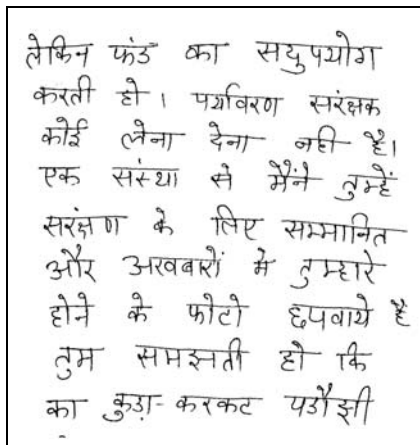 लेकिन फंड का सदुपयोग
करती हो। पर्यावरण संरक्षक
कोई लेना देना नही है।
एक संस्था से मैंने तुम्हें
सरंक्षण के लिए सम्मानित
और अखबारों मे तुम्हारे
होने के फोटो छपवाये है
तुम समझती हो कि
का कुडा-करकट पडौझी